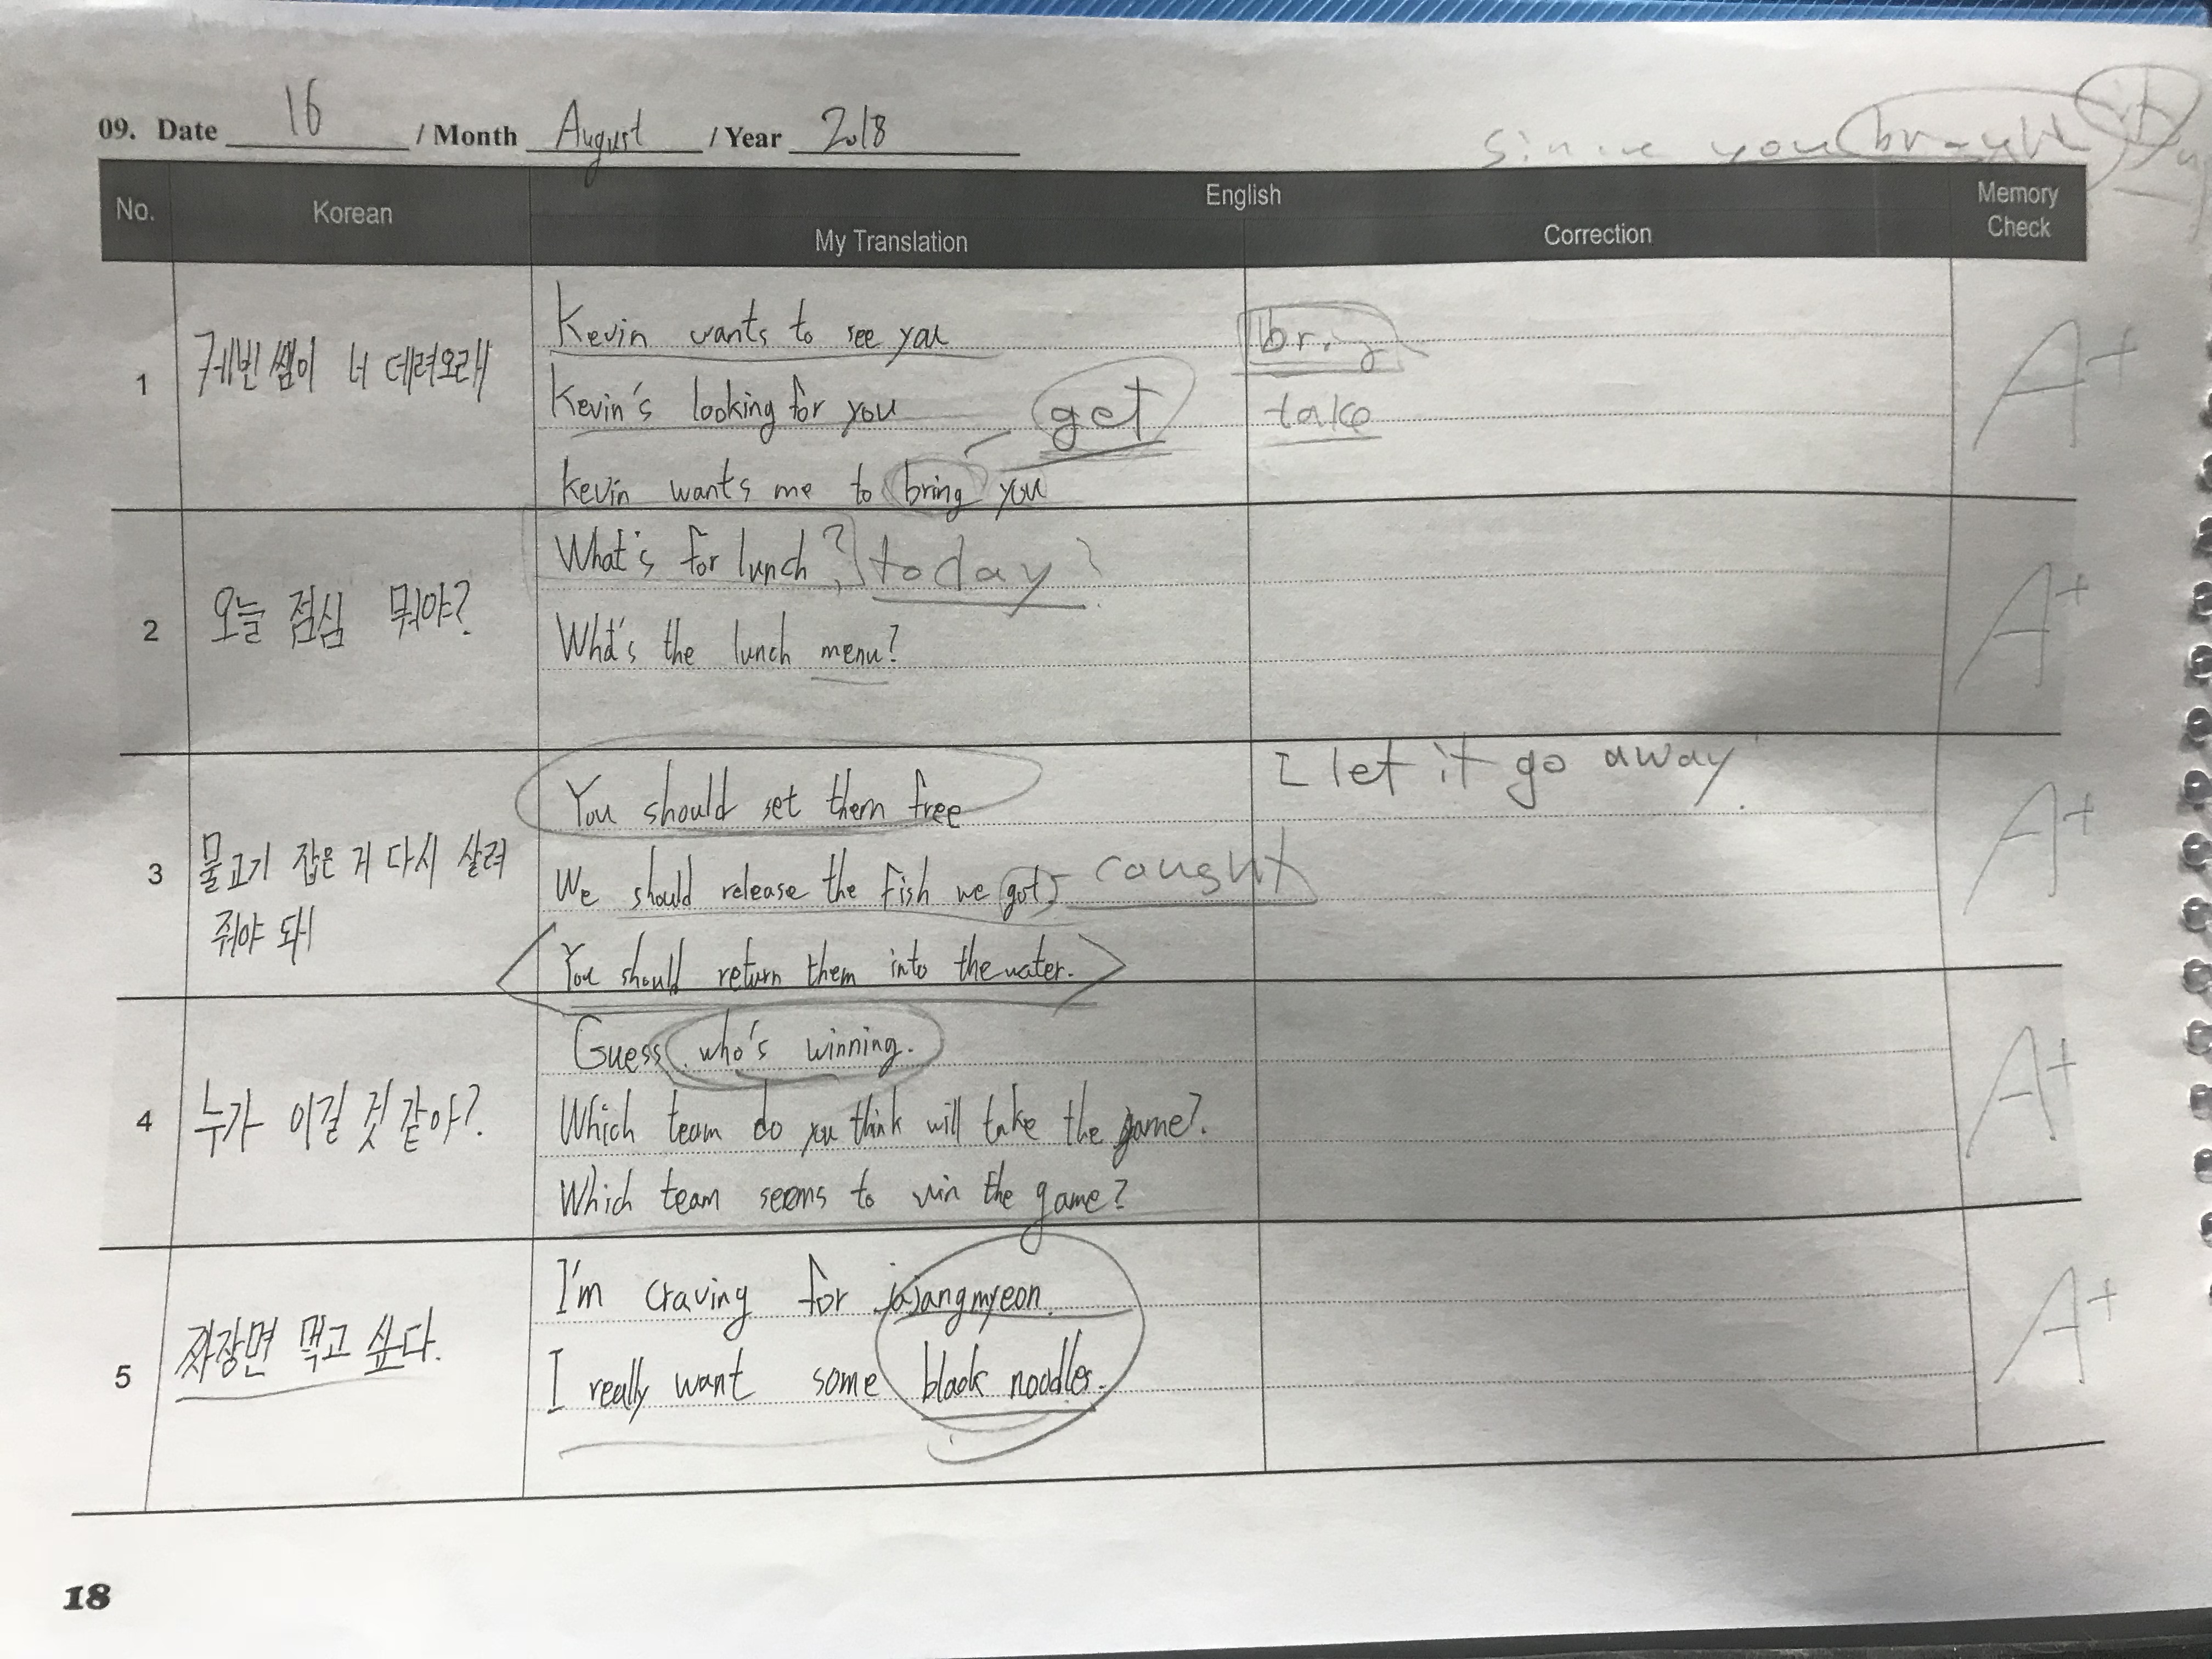 since you brought it up
09. Date 16 / Month August / Year 2018
No. Korean English Memory Check
My Translation Correction
1 케빈쌤이 너 데려오래
Kevin wants to see you
Kevin's looking for you get
Kevin wants me to bring you
bring
take
A+
2 오늘 점심 뭐야?
What's for lunch? today?
What's the lunch menu?
A+
3 물고기 잡은 거 다시 살려
줘야 돼
You should set them free
We should release the fish we got. caught
You should return them into the water.
I let it go away.
A+
4 누가 이길 것 같아?
Guess who's winning.
Which team do you think will take the game?
Which team seems to win the game?
A+
5 짜장면 먹고 싶다.
I'm craving for jajangmyeon.
I really want some black noodles.
A+
18